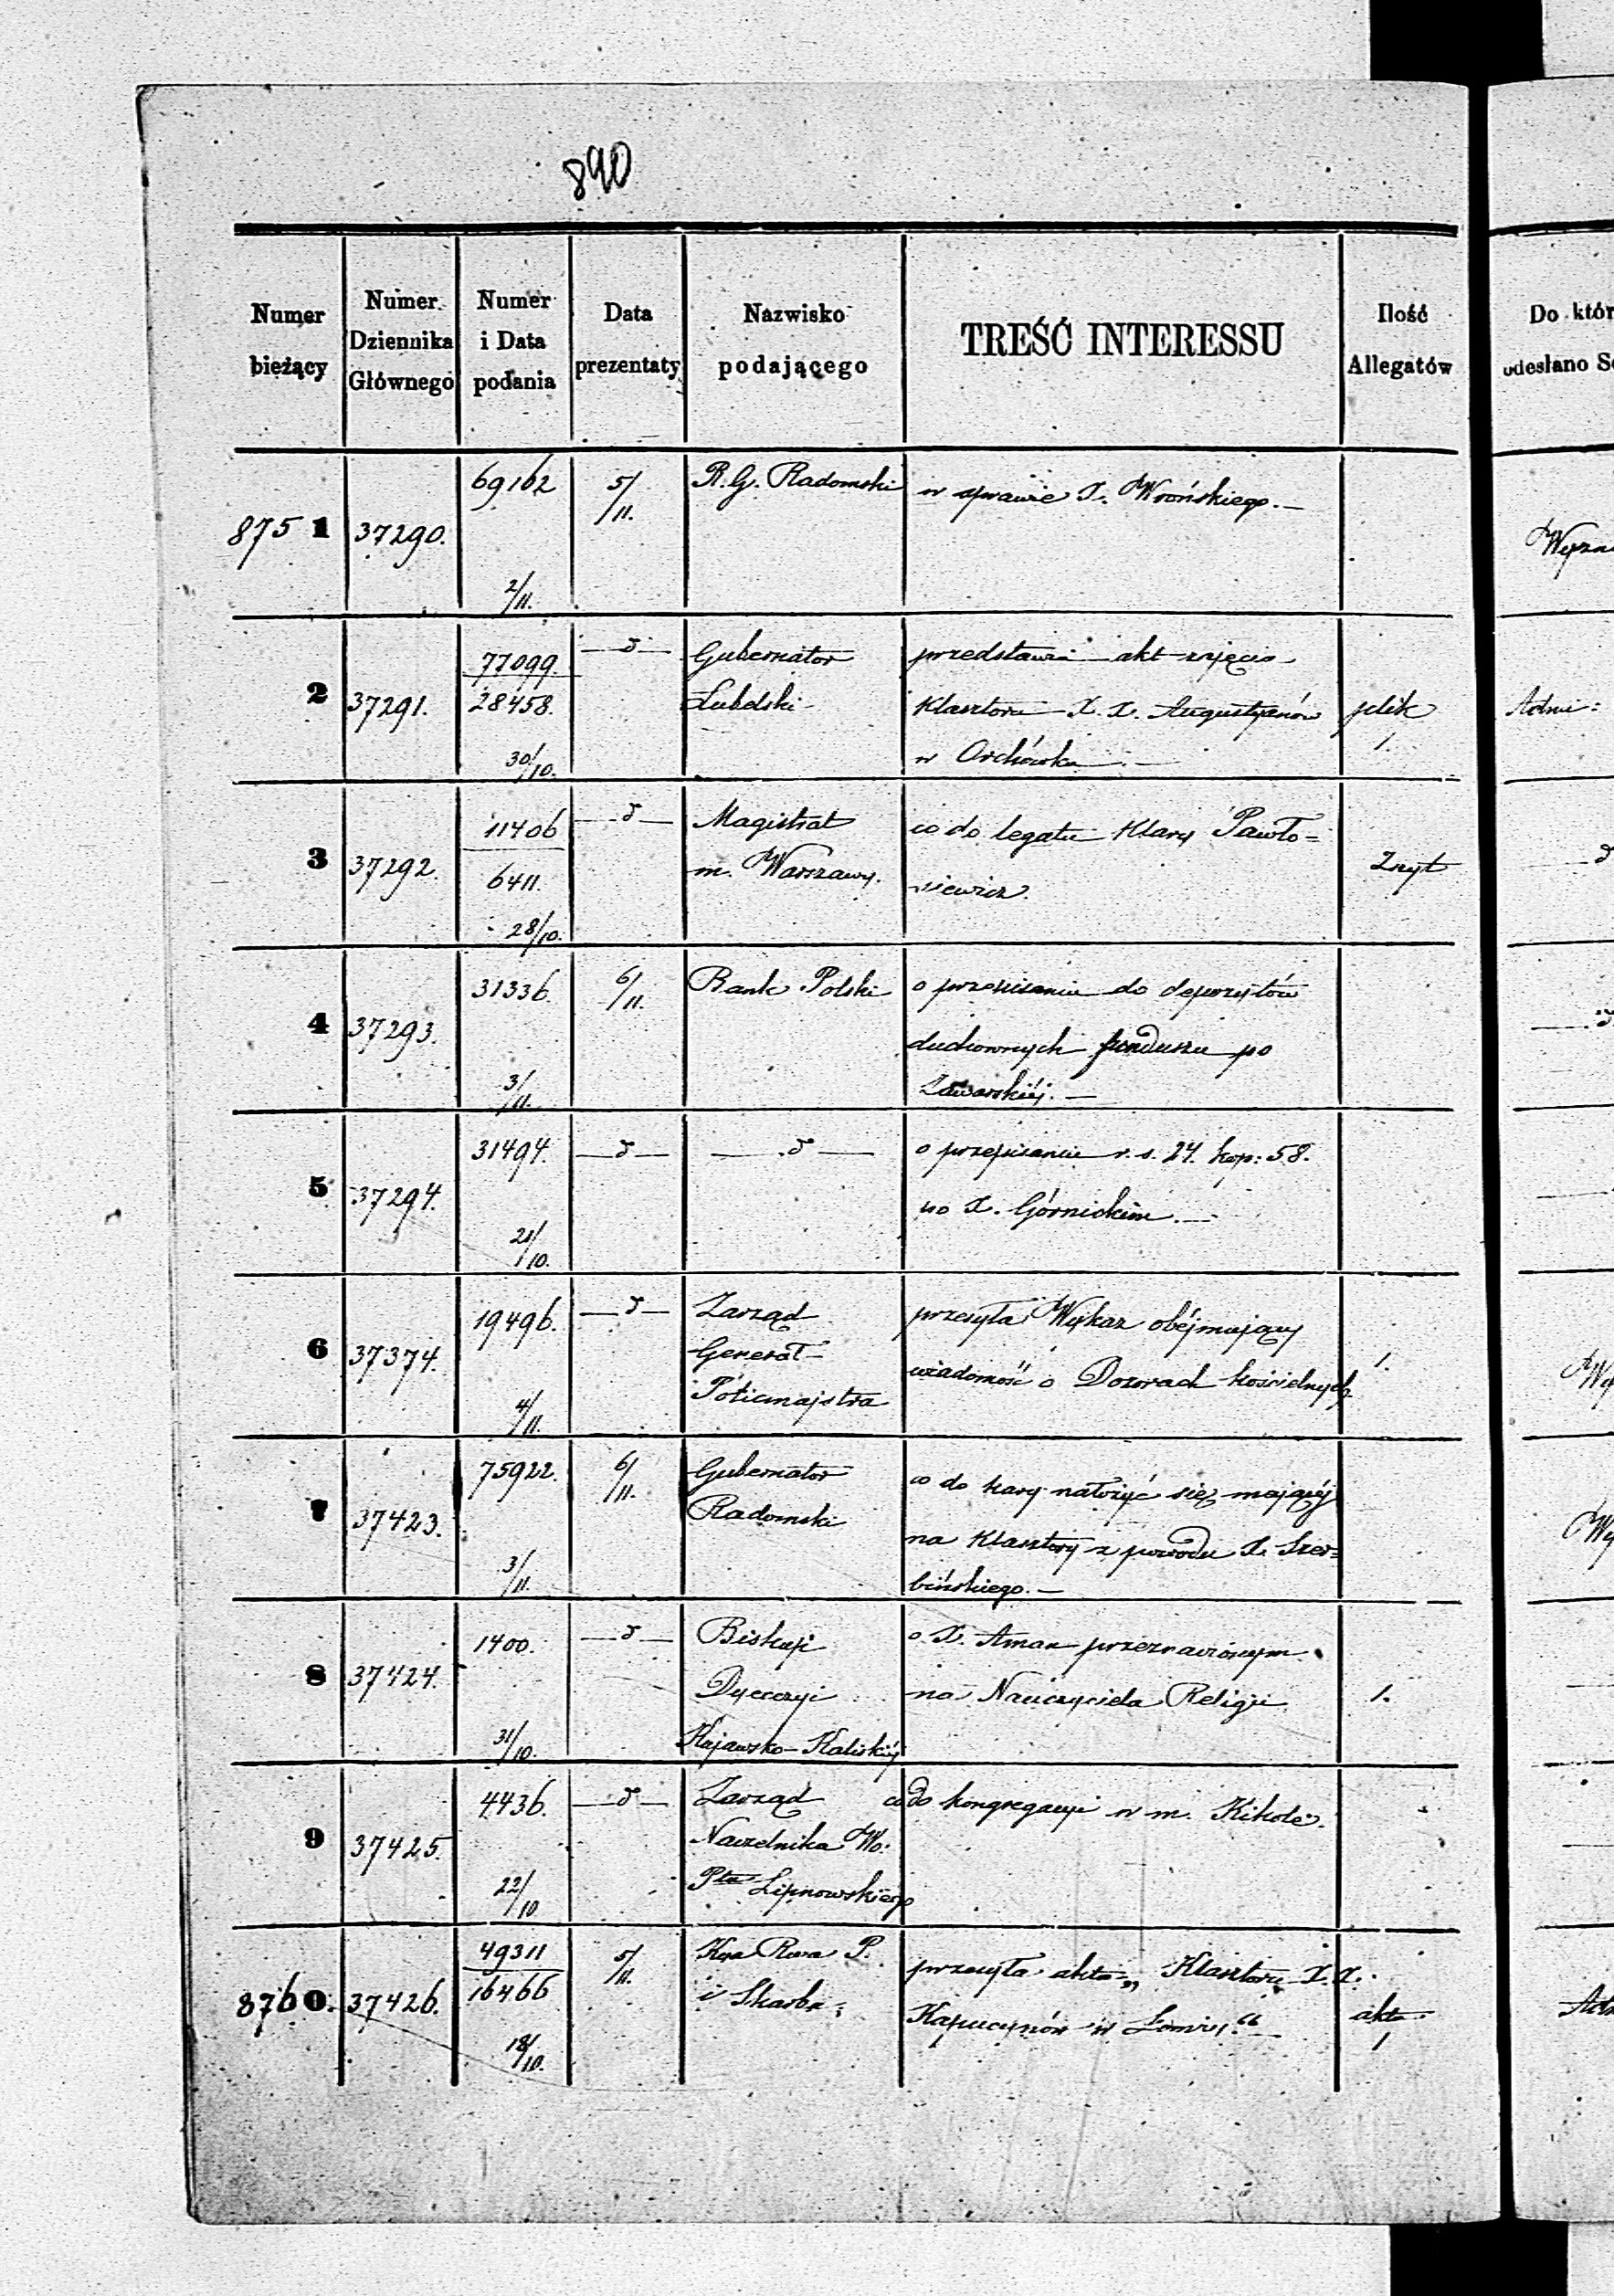 890
Numer bieżący
Numer Dziennika Głównego
Numer i Data podania
Data prezentaty
Nazwisko podającego
TREŚĆ INTERESSU
Ilość Allegatów
Do któr
odesłano S
8751 37290. 69162 2/11. 5/11. R. G. Radomski w sprawie X. Wrońskiego.—
2 37291. 77099. 28458. 30/10. —d— Gubernator
Lubelski
przedstawia akt zajęcia
Klasztoru X. X. Augustyanów
w Orchówku.—
plik
1.
Admi:
3 37292. 11406 6411. 28/10. —d— Magistrat
m. Warszawy.
co do legatu Klary Pawło=
siewicz.
Zszyt
—d
4 37293. 31336. 3/11. 6/11. Bank Polski
o przepisanie do depozytów
duchownych funduszu po
Zawarskiéj.—
5 37294. 31494. 21/10. —d— —d—
o przepisanie r. s. 24. kop: 58.
po X. Górnickim.—
6 37374. 19496. 4/11. —d— Zarząd
Generał
Policmajstra
przesyła Wykaz obéjmujący
wiadomość o Dozorach kościelnych
1.
7 37423. 75922. 3/11. 6/11. Gubernator
Radomski
co do kary nałożyć się mającéj
na Klasztory z powodu X. Szer=
bińskiego.—
8 37424. 1400. 31/10. —d— Biskup
Dyecezyi
Kujawsko-Kaliskiéj
o X. Aman przeznaczonym
na Nauczyciela Religii
1.
9 37425. 4436. 22/10 —d— Zarząd
Naczelnika Wo:
Ptu Lipnowskiego
co do kongregacyi w m. Kikole.
8760. 37426. 49311 16466 18/10. 5/11. Kya Rwa P.
i Skarbu
przesyła akta „Klasztoru X. X.
Kapucynów w Łomży.“—
akta
1